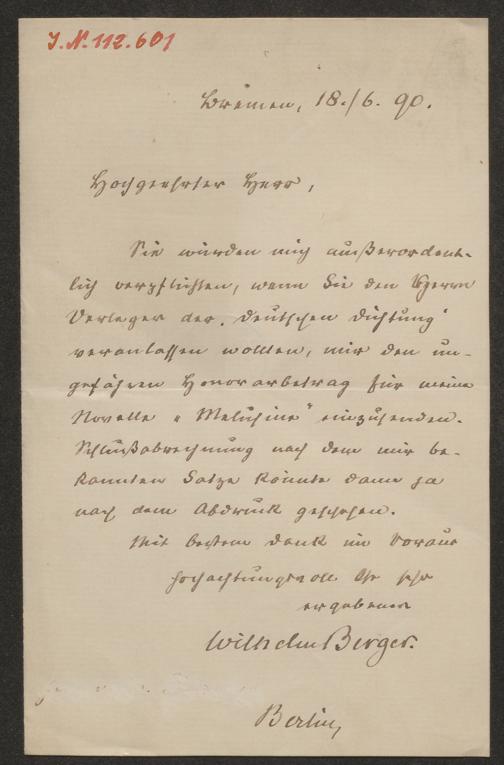 J.N. 112.601
Bremen, 18./6. 90.
Hochgeehrter Herr,
Sie würden mich außerordent-
lich verpflichten, wenn Sie den Herrn
Verleger der „Deutschen Dichtung"
veranlassen wollten, mir den un-
gefähren Honorarbetrag für meine
Novelle „Melusine" einzusenden.
Schlußabrechnung nach dem mir be-
kannten Satze könnte dann ja
nach dem Abdruck geschehen.
Mit bestem Dank im Voraus
hochachtungsvoll Ihr sehr
ergebener
Wilhelm Berger.
Berlin,